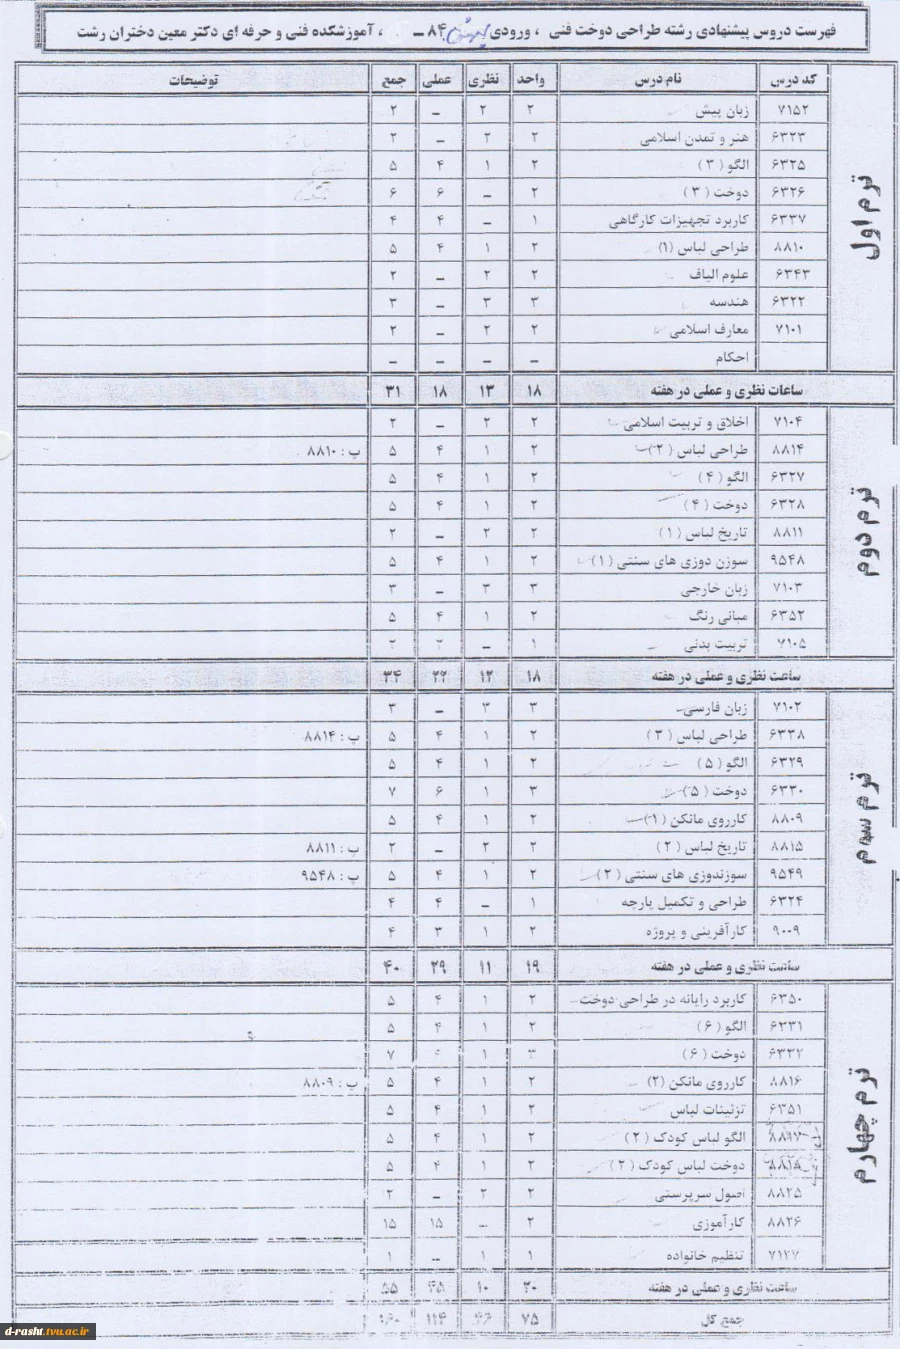 فهرست دروس پیشنهادی رشته طراحی دوخت فنی ، ورودی ۸۴ ـ ، آموزشکده فنی و حرفه ای دکتر معین دختران رشت
کد درس نام درس واحد نظری عملی جمع توضیحات
ترم اول
۷۱۵۲ زبان پیش ۲ ۲ ـ ۲
۶۳۲۳ هنر و تمدن اسلامی ۲ ۲ ـ ۲
۶۳۲۵ الگو ( ۳ ) ۲ ۱ ۴ ۵
۶۳۲۶ دوخت ( ۳ ) ۲ ـ ۶ ۶
۶۳۳۷ کاربرد تجهیزات کارگاهی ۱ ـ ۴ ۴
۸۸۱۰ طراحی لباس (۱) ۲ ۱ ۴ ۵
۶۳۴۳ علوم الیاف ۲ ۲ ـ ۲
۶۳۲۲ هندسه ۳ ۳ ـ ۳
۷۱۰۱ معارف اسلامی ۲ ۲ ـ ۲
احکام ـ ـ ـ ـ
ساعات نظری و عملی در هفته ۱۸ ۱۳ ۱۸ ۳۱
ترم دوم
۷۱۰۴ اخلاق و تربیت اسلامی ۲ ۲ ـ ۲
۸۸۱۴ طراحی لباس ( ۲ ) ۲ ۱ ۴ ۵ پ : ۸۸۱۰
۶۳۲۷ الگو ( ۴ ) ۲ ۱ ۴ ۵
۶۳۲۸ دوخت ( ۴ ) ۲ ۱ ۴ ۵
۸۸۱۱ تاریخ لباس ( ۱ ) ۲ ۲ ـ ۲
۹۵۴۸ سوزن دوزی های سنتی ( ۱ ) ۲ ۱ ۴ ۵
۷۱۰۳ زبان خارجی ۳ ۳ ـ ۳
۶۳۵۲ مبانی رنگ ۲ ۱ ۴ ۵
۷۱۰۵ تربیت بدنی ۱ ـ ۲ ۲
ساعت نظری و عملی در هفته ۱۸ ۱۲ ۲۲ ۳۴
ترم سوم
۷۱۰۲ زبان فارسی ۳ ۳ ـ ۳
۶۳۳۸ طراحی لباس ( ۳ ) ۲ ۱ ۴ ۵ پ : ۸۸۱۴
۶۳۲۹ الگو ( ۵ ) ۲ ۱ ۴ ۵
۶۳۳۰ دوخت ( ۵ ) ۳ ۱ ۶ ۷
۸۸۰۹ کارروی مانکن ( ۱ ) ۲ ۱ ۴ ۵
۸۸۱۵ تاریخ لباس ( ۲ ) ۲ ۲ ـ ۲ پ : ۸۸۱۱
۹۵۴۹ سوزندوزی های سنتی ( ۲ ) ۲ ۱ ۴ ۵ پ : ۹۵۴۸
۶۳۲۴ طراحی و تکمیل پارچه ۱ ـ ۴ ۴
۹۰۰۹ کارآفرینی و پروژه ۲ ۱ ۳ ۴
ساعت نظری و عملی در هفته ۱۹ ۱۱ ۲۹ ۴۰
ترم چهارم
۶۳۵۰ کاربرد رایانه در طراحی دوخت ۲ ۱ ۴ ۵
۶۳۳۱ الگو ( ۶ ) ۲ ۱ ۴ ۵
۶۳۳۲ دوخت ( ۶ ) ۳ ۱ ۷
۸۸۱۶ کارروی مانکن (۲) ۲ ۱ ۴ ۵ پ : ۸۸۰۹
۶۳۵۱ تزئینات لباس ۲ ۱ ۴ ۵
۸۸۱۷ الگو لباس کودک ( ۲ ) ۲ ۱ ۴ ۵
۸۸۱۸ دوخت لباس کودک ( ۲ ) ۲ ۱ ۴ ۵
۸۸۲۵ اصول سرپرستی ۲ ۲ ـ ۲
۸۸۲۶ کارآموزی ۲ ـ ۱۵ ۱۵
۷۱۲۷ تنظیم خانواده ۱ ۱ ـ ۱
ساعت نظری و عملی در هفته ۲۰ ۱۰ ۴۵ ۵۵
جمع کل ۷۵ ۴۶ ۱۱۴ ۱۶۰
d-rasht.tvu.ac.ir